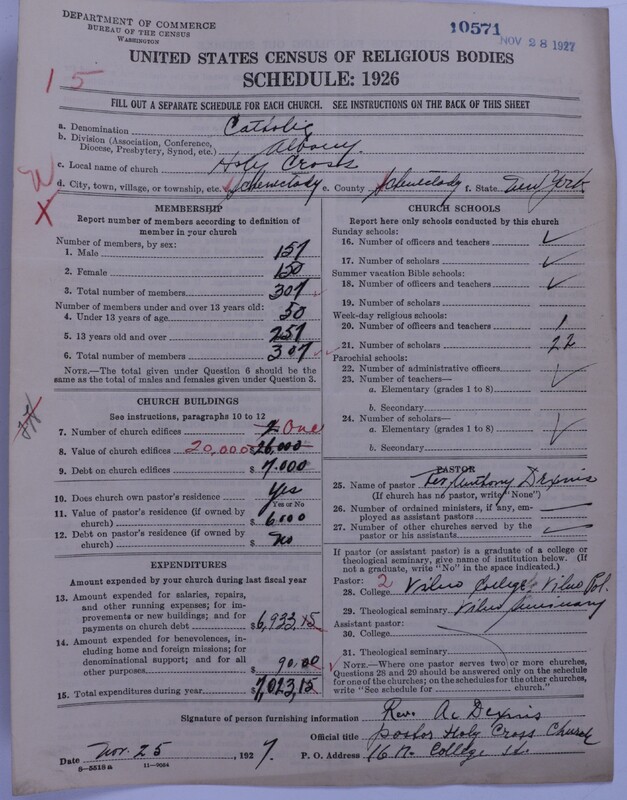 DEPARTMENT OF COMMERCE
BUREAU OF THE CENSUS
WASHINGTON
10571
NOV 28 1927
UNITED STATES CENSUS OF RELIGIOUS BODIES
SCHEDULE: 1926
15
FILL OUT A SEPARATE SCHEDULE FOR EACH CHURCH. SEE INSTRUCTIONS ON THE BACK OF THIS SHEET
a. Denomination Catholic
b. Division (Association, Conference, Diocese, Presbytery, Synod, etc.) Albany
c. Local name of church Holy Cross
d. City, town, village, or township, etc. Schenectady e. County Schenectady f. State New York
X
MEMBERSHIP
Report number of members according to definition of
member in your church
Number of members, by sex:
1. Male 157
2. Female 150
3. Total number of members 307
Number of members under and over 13 years old:
4. Under 13 years of age 50
5. 13 years old and over 257
6. Total number of members 307
NOTE.—The total given under Question 6 should be
same as the total of males and females given under Question 3.
CHURCH BUILDINGS
See instructions, paragraphs 10 to 12
7. Number of church edifices 2 One
8. Value of church edifices 20,000 $26,000
9. Debt on church edifices $7.000
10. Does church own pastor's residence? Yes
Yes or No
11. Value of pastor's residence (if owned by
church) $6.000
12. Debt on pastor's residence (if owned by
church) $No
EXPENDITURES
Amount expended by your church during last fiscal year
13. Amount expended for salaries, repairs,
and other running expenses; for im-
provements or new buildings; and for
payments on church debt $6,933,15
14. Amount expended for benevolences,
including home and foreign missions; for
denominational support; and for all
other purposes $90.00
15. Total expenditures during year $7,023,15
CHURCH SCHOOLS
Report here only schools conducted by this church
Sunday schools:
16. Number of officers and teachers
17. Number of scholars
Summer vacation Bible schools:
18. Number of officers and teachers
19. Number of scholars
Week-day religious schools:
20. Number of officers and teachers 1
21. Number of scholars 22
Parochial schools:
22. Number of administrative officers
23. Number of teachers—
a. Elementary (grades 1 to 8)
b. Secondary
24. Number of scholars—
a. Elementary (grades 1 to 8)
b. Secondary
PASTOR
25. Name of pastor Rev Anthony Dexnis
(If church has no pastor, write "None")
26. Number of ordained ministers, if any, em-
ployed as assistant pastors
27. Number of other churches served by the
pastor or his assistants
If pastor (or assistant pastor) is a graduate of a college or
theological seminary, give name of institution below. (If
not a graduate, write "No" in the space indicated.)
Pastor: 2
28. College Vilno College, Vilno Pol.
29. Theological seminary Vilno Seminary
Assistant pastor:
30. College
31. Theological seminary
NOTE.—Where one pastor serves two or more churches,
Questions 28 and 29 should be answered only on the schedule
for one of the churches; on the schedules for the other churches,
write "See schedule for church."
Signature of person furnishing information Rev. A. Dexnis
Official title pastor Holy Cross Church
Date Nov. 25, 1927. P. O. Address 16 N. College St.
8-5518a 11-9024